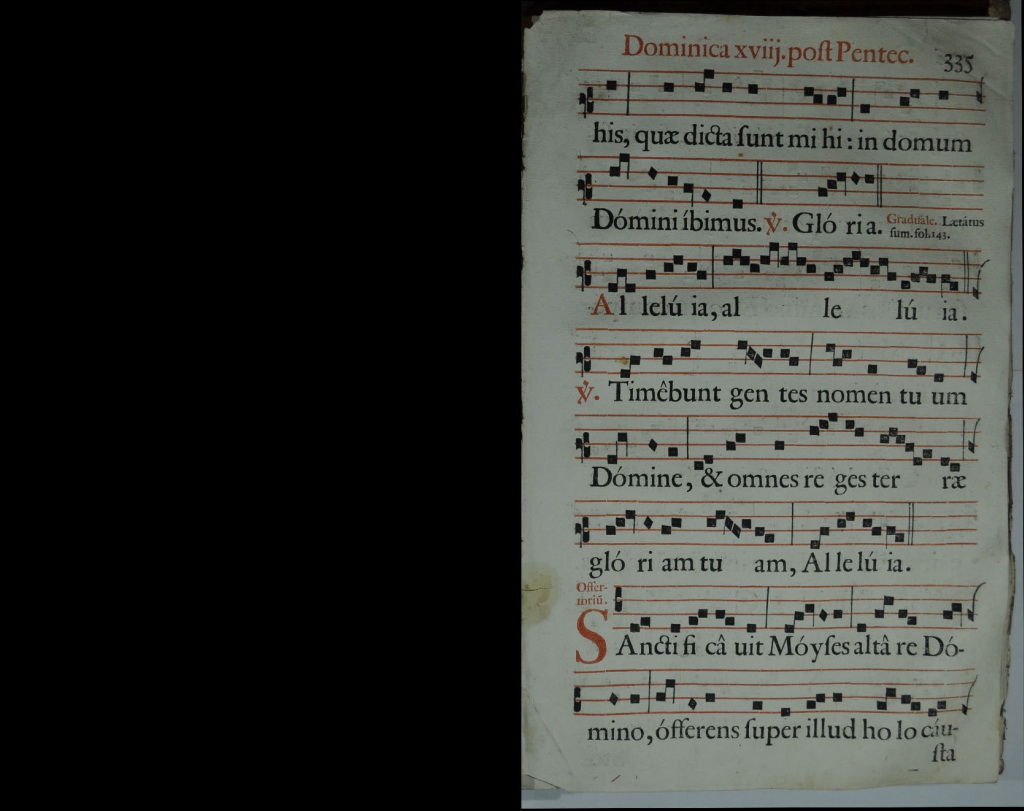 Dominica xviij. post Pentec.
335
his, quæ dicta ſunt mi hi : in domum
Dómini íbimus. ℣. Gló ria. Graduale. Lætátus
ſum. fol. 143.
Al lelú ia, al le lú ia.
℣. Timêbunt gen tes nomen tu um
Dómine, & omnes re ges ter ræ
gló ri am tu am, Al le lú ia.
Offer-
toriū.
SAncti fi câ uit Móyſes altâ re Dó-
mino, ófferens ſuper illud ho lo cáu-
ſta